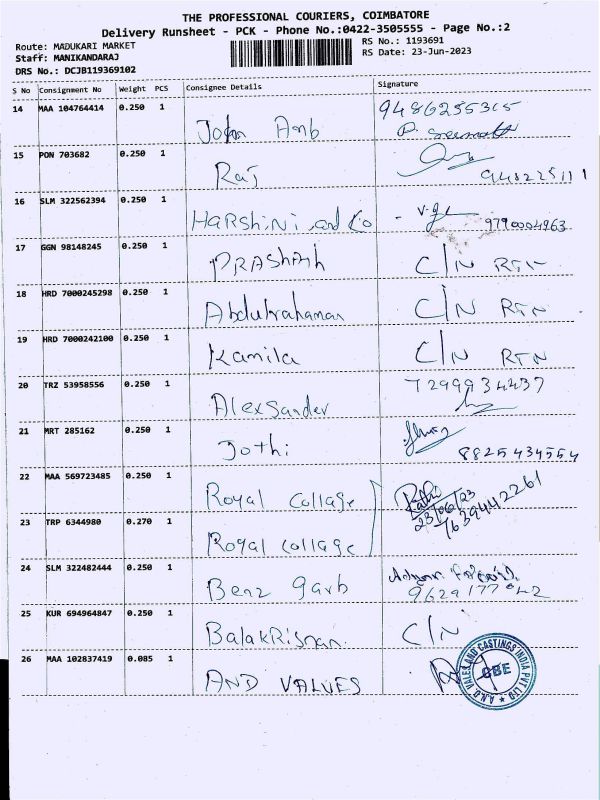 THE PROFESSIONAL COURIERS, COIMBATORE
Delivery Runsheet - PCK - Phone No.:0422-3505555 - Page No.:2
Route: MADUKARI MARKET RS No.: 1193691
Staff: MANIKANDARAJ RS Date: 23-Jun-2023
DRS No.: DCJB119369102
S No Consignment No Weight PCS Consignee Details Signature
14 MAA 104764414 0.250 1 John Amb 9486255365
15 PON 703682 0.250 1 Raj 948225111
16 SLM 322562394 0.250 1 HARSHINI and Co 9790004963
17 GGN 98148245 0.250 1 PRASHATH C/N RTN
18 HRD 7000245298 0.250 1 Abdulrahaman C/N RTN
19 HRD 7000242100 0.250 1 Kamila C/N RTN
20 TRZ 53958556 0.250 1 Alexsander 7299934437
21 MRT 285162 0.250 1 Jothi 8825434554
22 MAA 569723485 0.250 1 Royal Collage 23/06/23
7639442261
23 TRP 6344980 0.270 1 Royal Collage
24 SLM 322482444 0.250 1 Benz Garb 9629177042
25 KUR 694964847 0.250 1 BalakRisnan C/N
26 MAA 102837419 0.085 1 AND VALUES
A.N.D. VALES AND CASTINGS INDIA PVT LTD
CBE